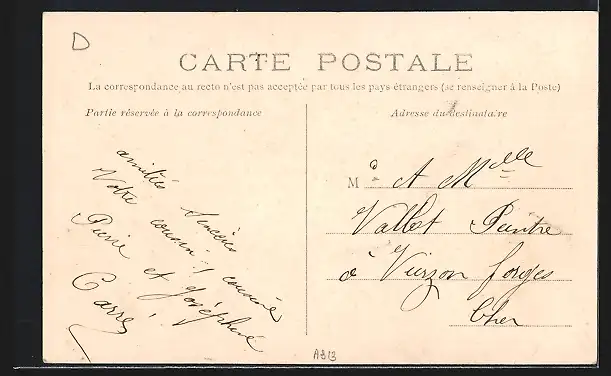 D
CARTE POSTALE
La correspondance au recto n'est pas acceptée par tous les pays étrangers (se renseigner à la Poste)
Partie réservée à la correspondance
Adresse du destinataire
Sincères
amitiés cousine
Votre cousin et Joséphine
Pierre
Carré
M A Melle
Vallet Peintre
à Vierzon forges
Cher
A813